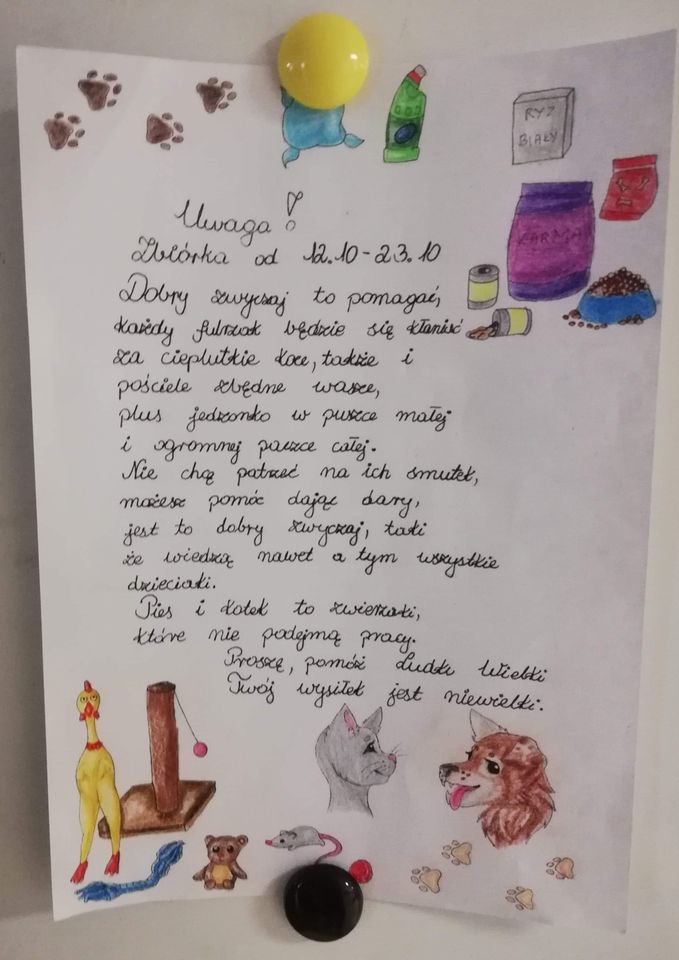 RYŻ
BIAŁY
KARMA
Uwaga!
Zbiórka od 12.10-23.10
Dobry zwyczaj to pomagać,
każdy futrzak będzie się kłaniać
za cieplutkie koce, także i
pościele zbędne wasze,
plus jedzonko w puszce małej
i ogromnej paczce całej.
Nie chcę patrzeć na ich smutek,
możesz pomóc dając dary,
jest to dobry zwyczaj, taki
że wiedzą nawet o tym wszystkie
dzieciaki.
Pies i kotek to zwierzaki,
które nie podejmą pracy.
Proszę, pomóż Ludki Wielki
Twój wysiłek jest niewielki.